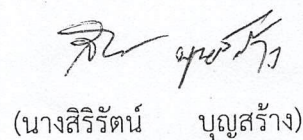 (นางสิริรัตน์ บุญสร้าง)